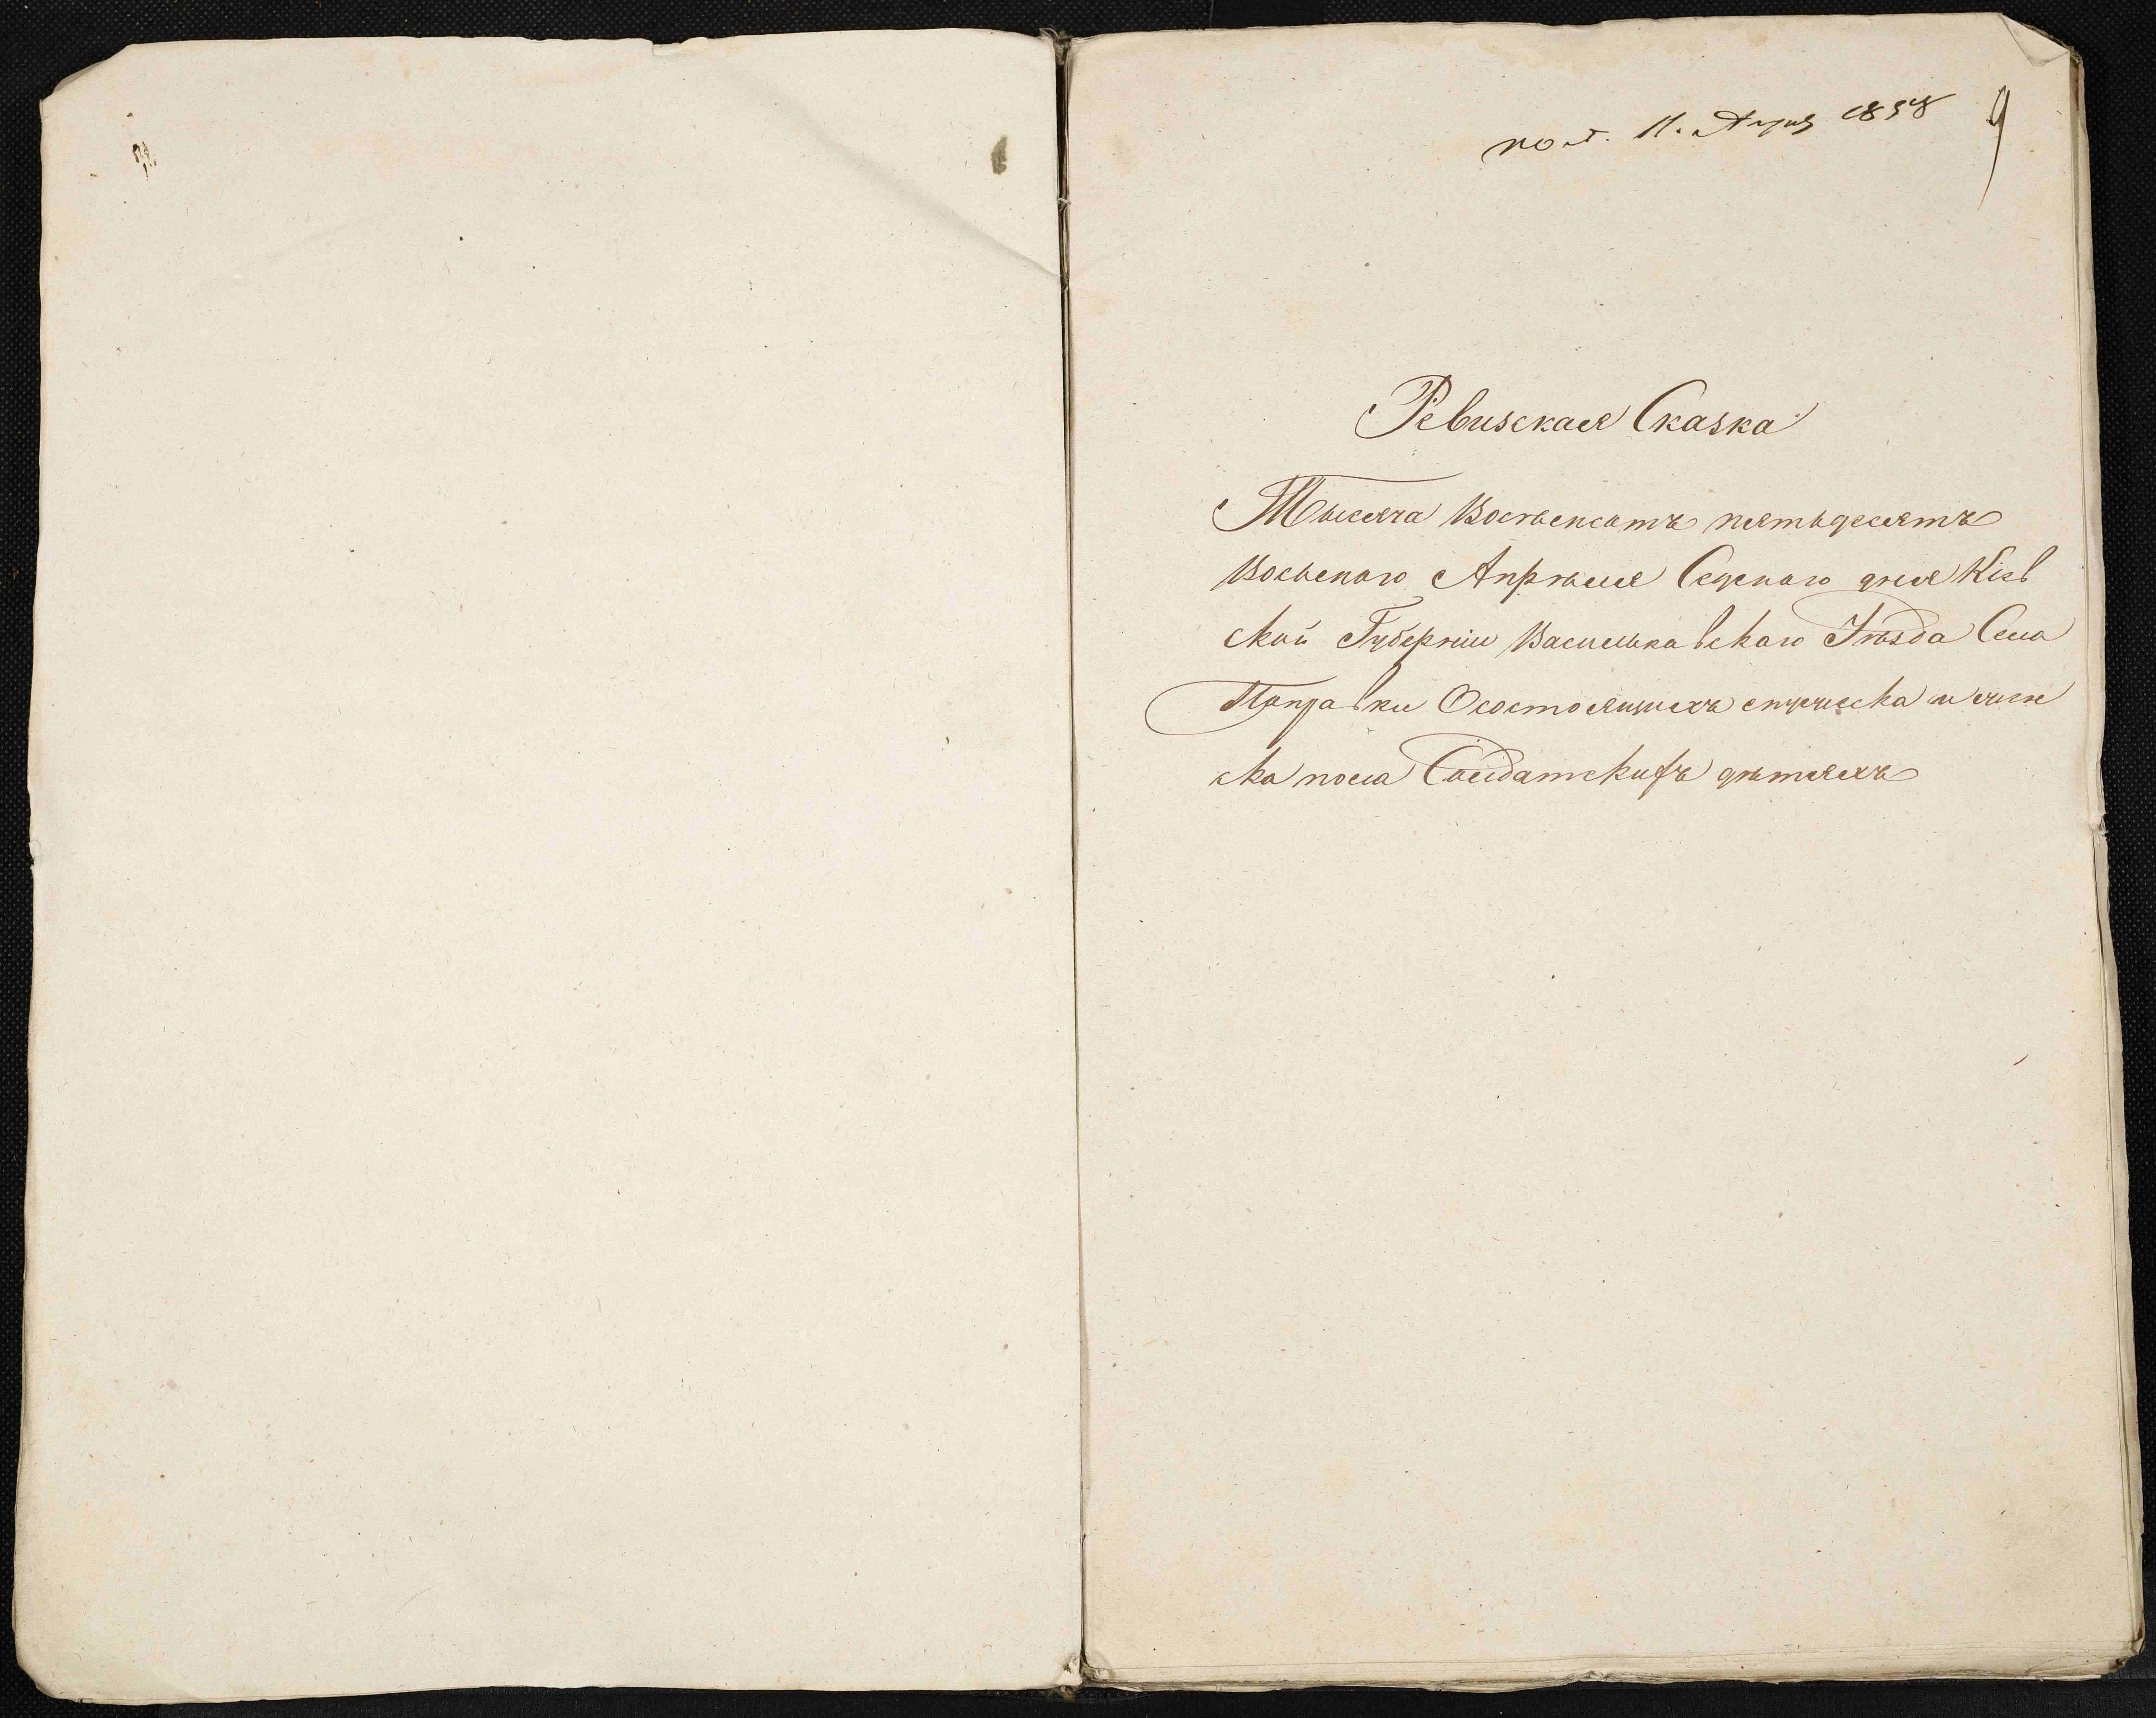 пол. 11. Апрел 1858 9
Ревизская Сказка
Тысяча Восемьсотъ пятьдесятъ
Восьмаго Апрѣля Седмаго дня Кіев
ской Губерніи Васильковскаго Уѣзда Села
Поправки Осостоящихъ мужеска и женс
ка пола Солдатскихъ дѣтяхъ